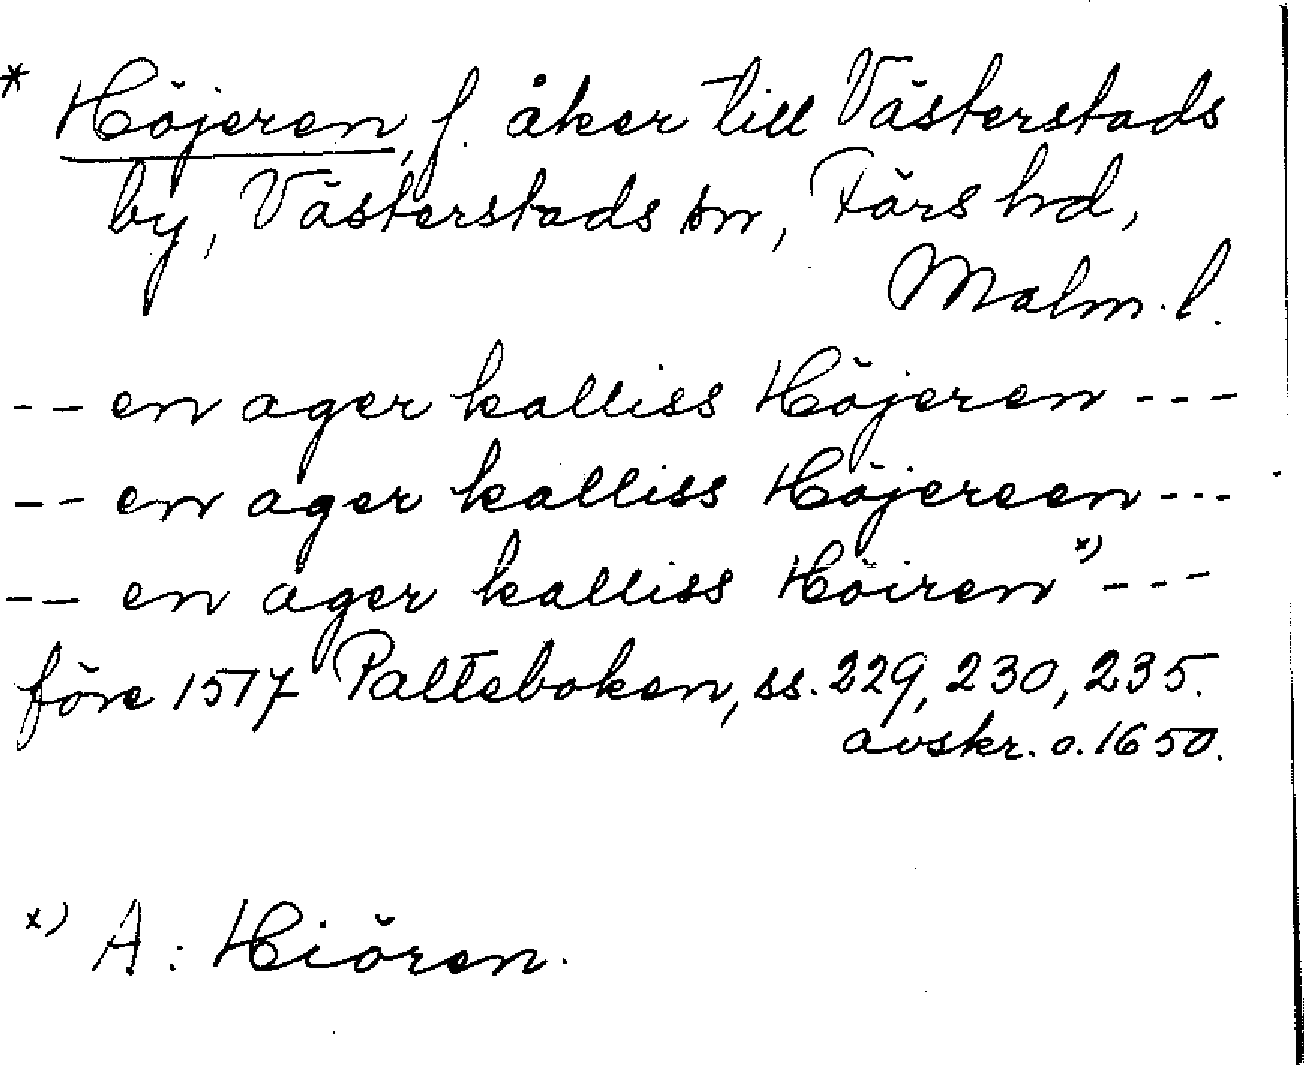 * Höjeren, f. åker till Västerstads
by, Västerstads sn, Färs hd,
Malm. l.
-- en ager kalliss Höjeren ---
-- en ager kalliss Höjereen ---
-- en ager kalliss Höiren x) ---
före 1517 Palteboken, ss. 229, 230, 235.
avskr. o. 1650.
x) A: Hiören.